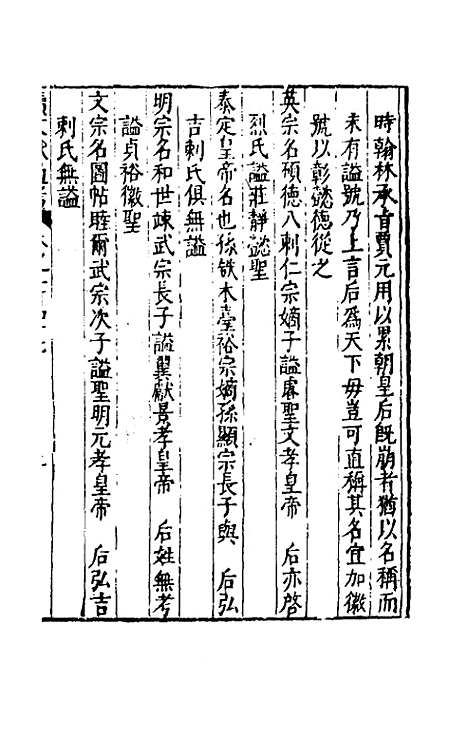 時翰林承㫖賈元用以累朝皇后旣崩者猶以名稱而
未有謚號乃上言后爲天下母豈可直稱其名宜加徽
號以彰懿德從之
英宗名碩德八剌仁宗嫡子謚睿聖文孝皇帝　后亦啓
烈氏謚莊靜懿聖
泰定皇帝名也孫鉄木耋裕宗嫡孫顯宗長子與　后弘
吉剌氏俱無謚
明宗名和世㻋武宗長子謚翼獻景孝皇帝　后姓無考
謚貞裕徽聖
文宗名圖帖睦爾武宗次子謚聖明元孝皇帝　后弘吉
剌氏無謚